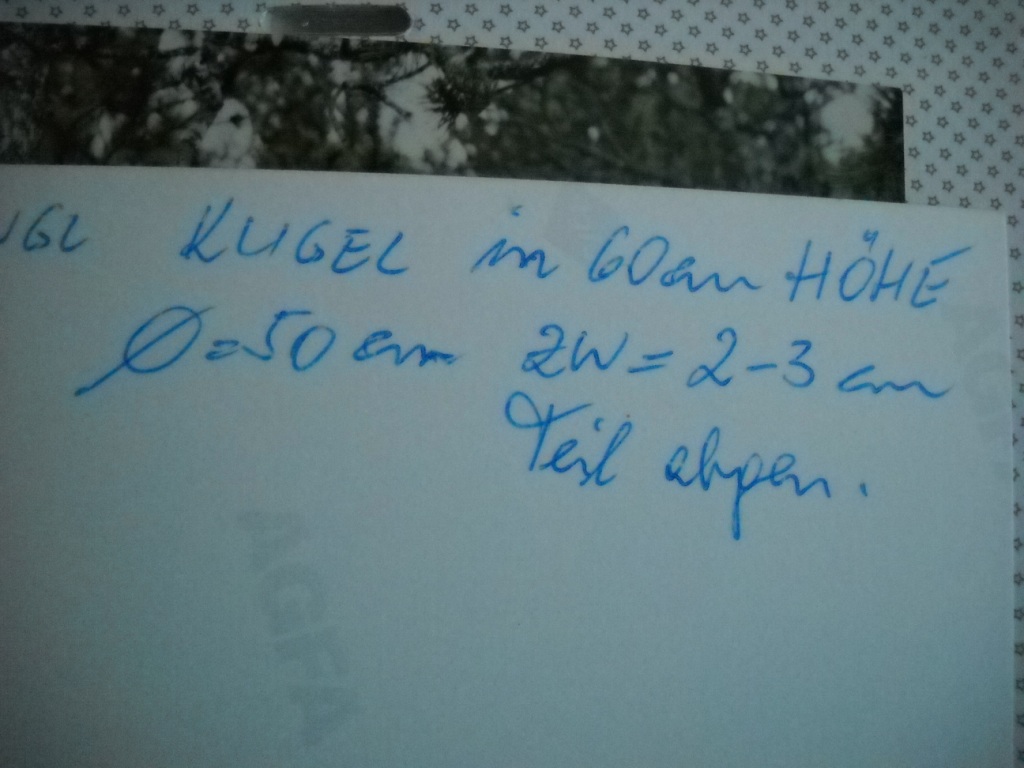 KUGEL in 60cm HÖHE
Ø=50cm ZW=2-3cm
Teil
AGFA